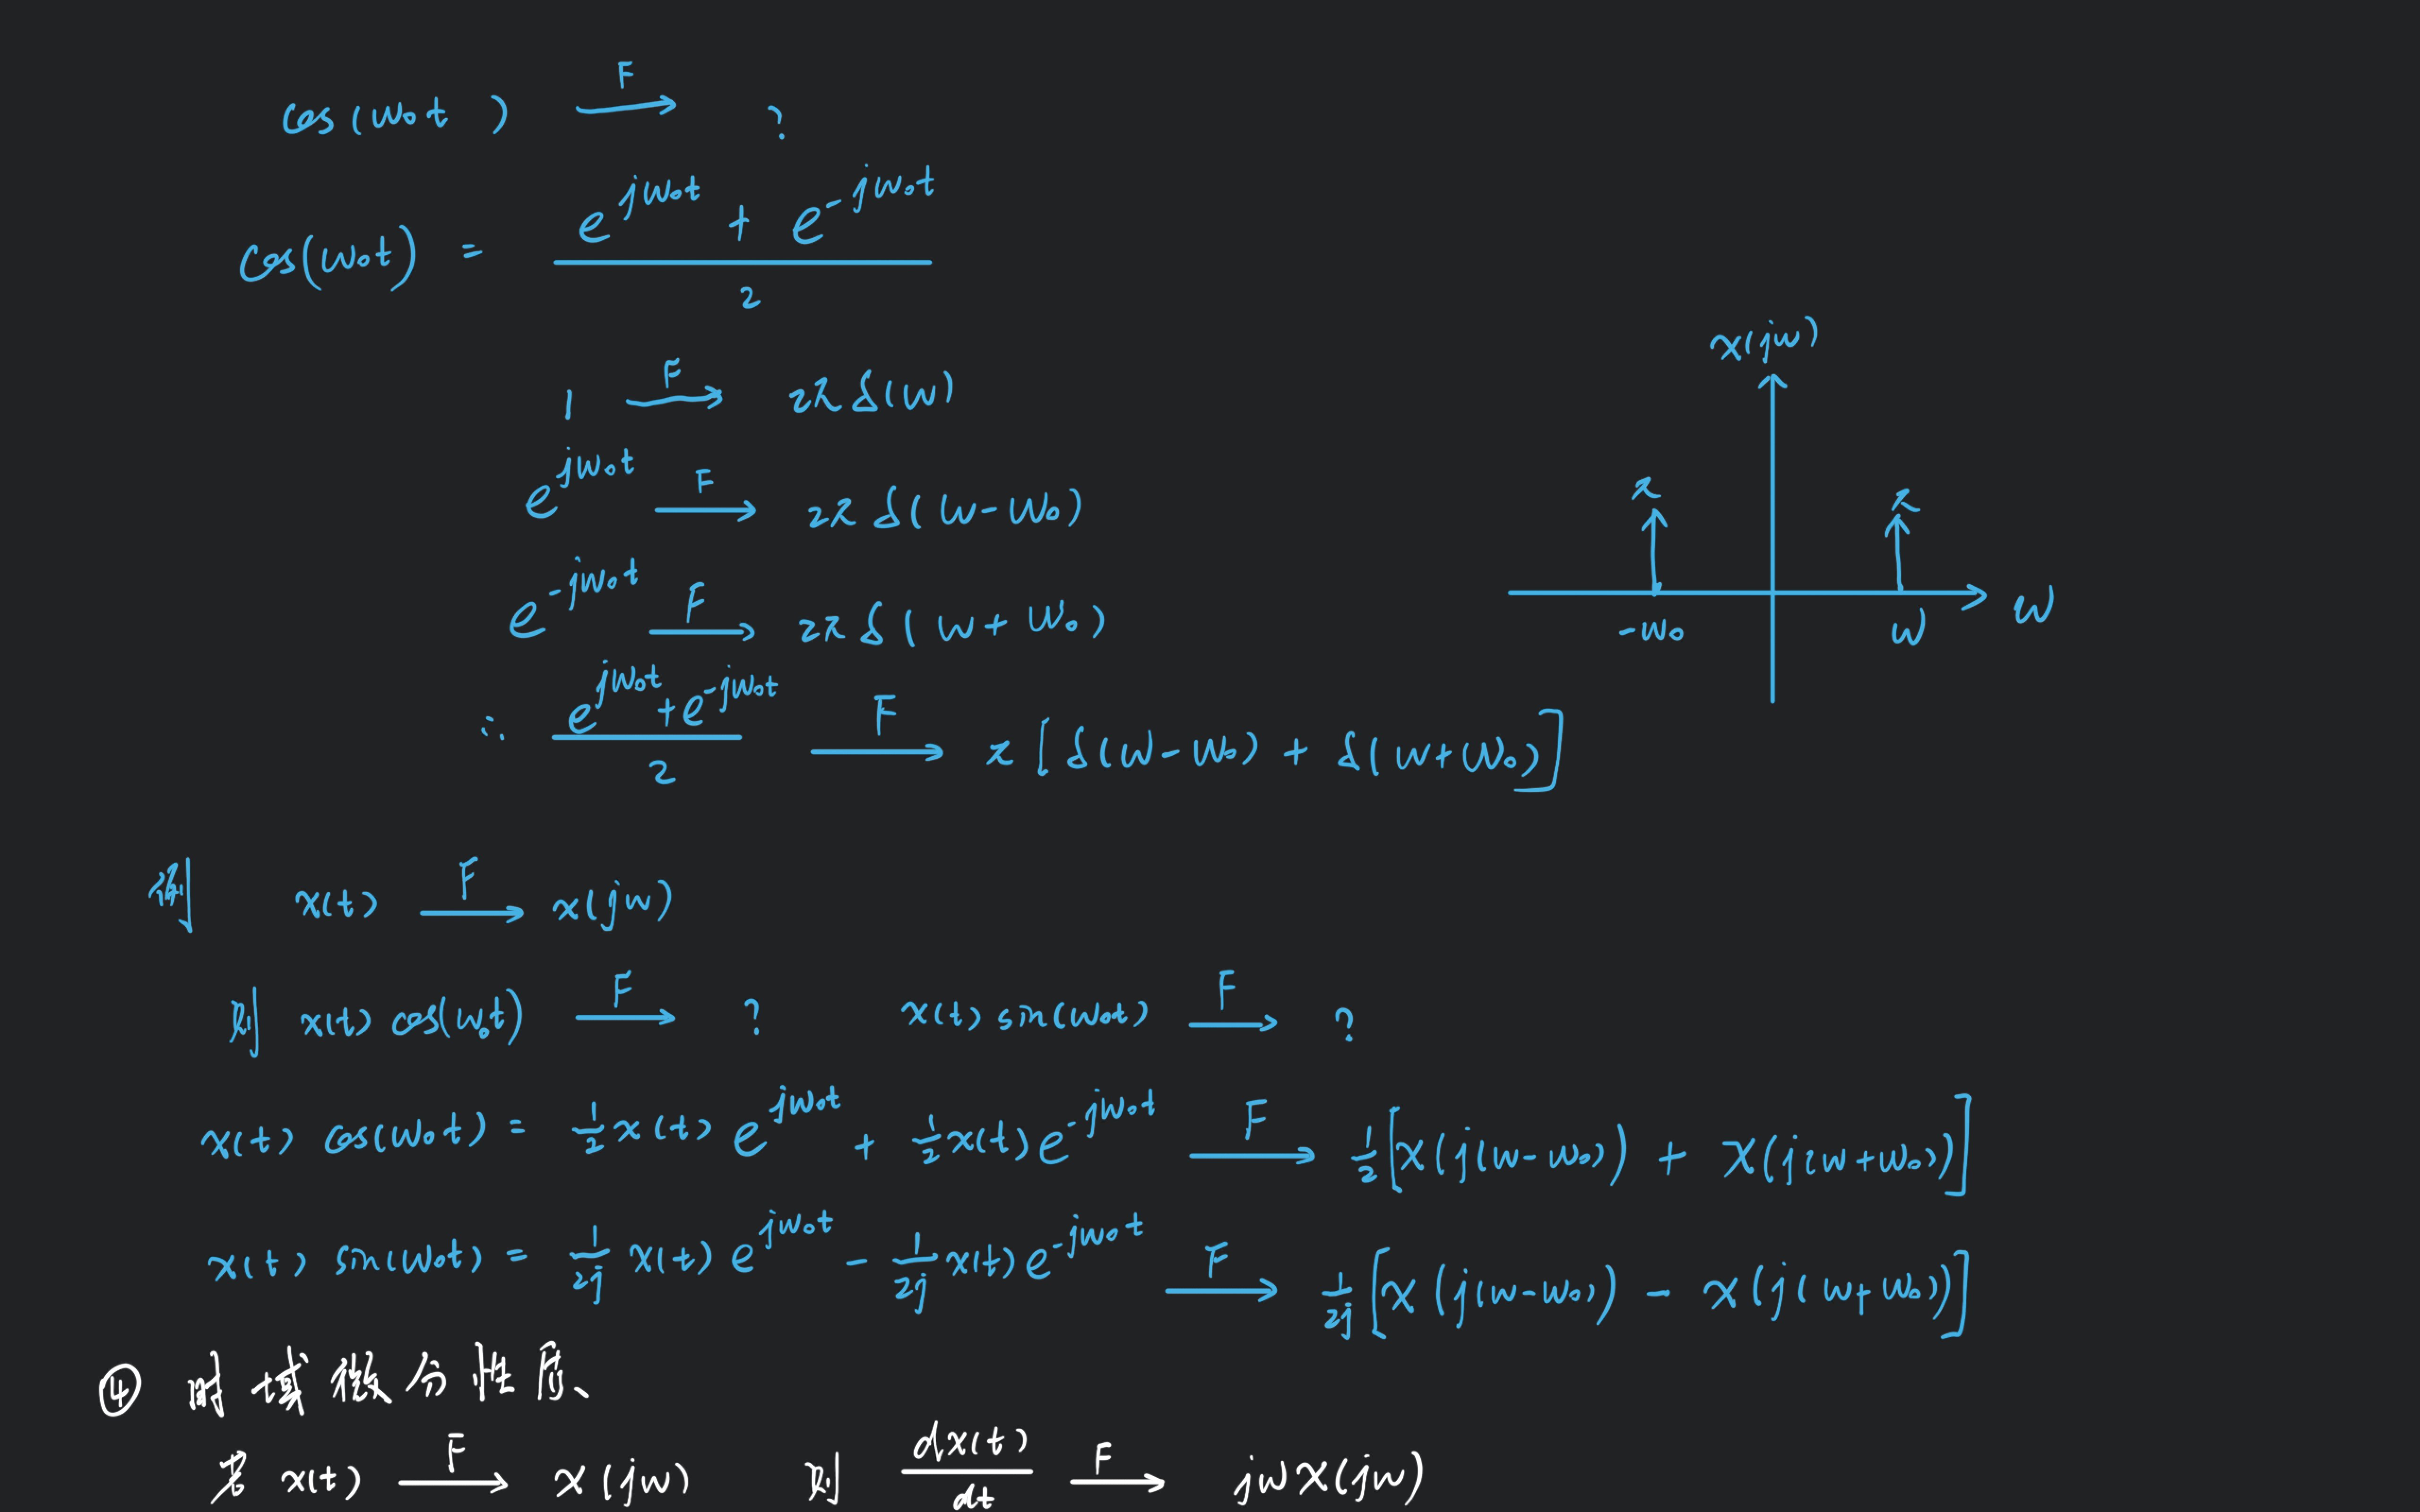 cos(ω₀t) —F→ ?
cos(ω₀t) = (e^{jω₀t} + e^{-jω₀t}) / 2
1 —F→ 2πδ(ω)
e^{jω₀t} —F→ 2πδ(ω-ω₀)
e^{-jω₀t} —F→ 2πδ(ω+ω₀)
∴ (e^{jω₀t} + e^{-jω₀t}) / 2 —F→ π[δ(ω-ω₀) + δ(ω+ω₀)]
x(jω)
π π
-ω₀ ω ω
例 x(t) —F→ x(jω)
则 x(t) cos(ω₀t) —F→ ? x(t) sin(ω₀t) —F→ ?
x(t) cos(ω₀t) = 1/2 x(t) e^{jω₀t} + 1/2 x(t) e^{-jω₀t} —F→ 1/2 [X(j(ω-ω₀) + X(j(ω+ω₀)]
x(t) sin(ω₀t) = 1/2j x(t) e^{jω₀t} - 1/2j x(t) e^{-jω₀t} —F→ 1/2j [X(j(ω-ω₀) - X(j(ω+ω₀))]
④ 时域微分性质、
若 x(t) —F→ X(jω) 则 dx(t)/dt —F→ jωX(jω)